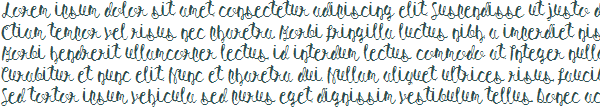 Lorem ipsum dolor sit amet consectetur adipiscing elit Suspendisse ut justo d
Etiam tempor vel risus nec pharetra Morbi fringilla luctus nibh a imperdiet nis
Morbi hendrerit ullamcorper lectus id interdum lectus commodo at Integer null
Curabitur et nunc elit Nunc et pharetra dui Nullam aliquet ultrices risus fauci
Sed tortor ipsum vehicula sed purus eget dignissim vestibulum tellus Donec ac